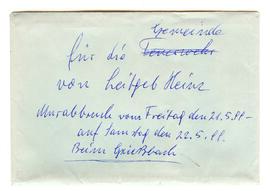 Gemeinde
für die Feuerwehr
von Leitgeb Heinz
Murabbruch vom Freitag den 21.5.99 -
auf Samstag den 22.5.99.
Beim Grießbach